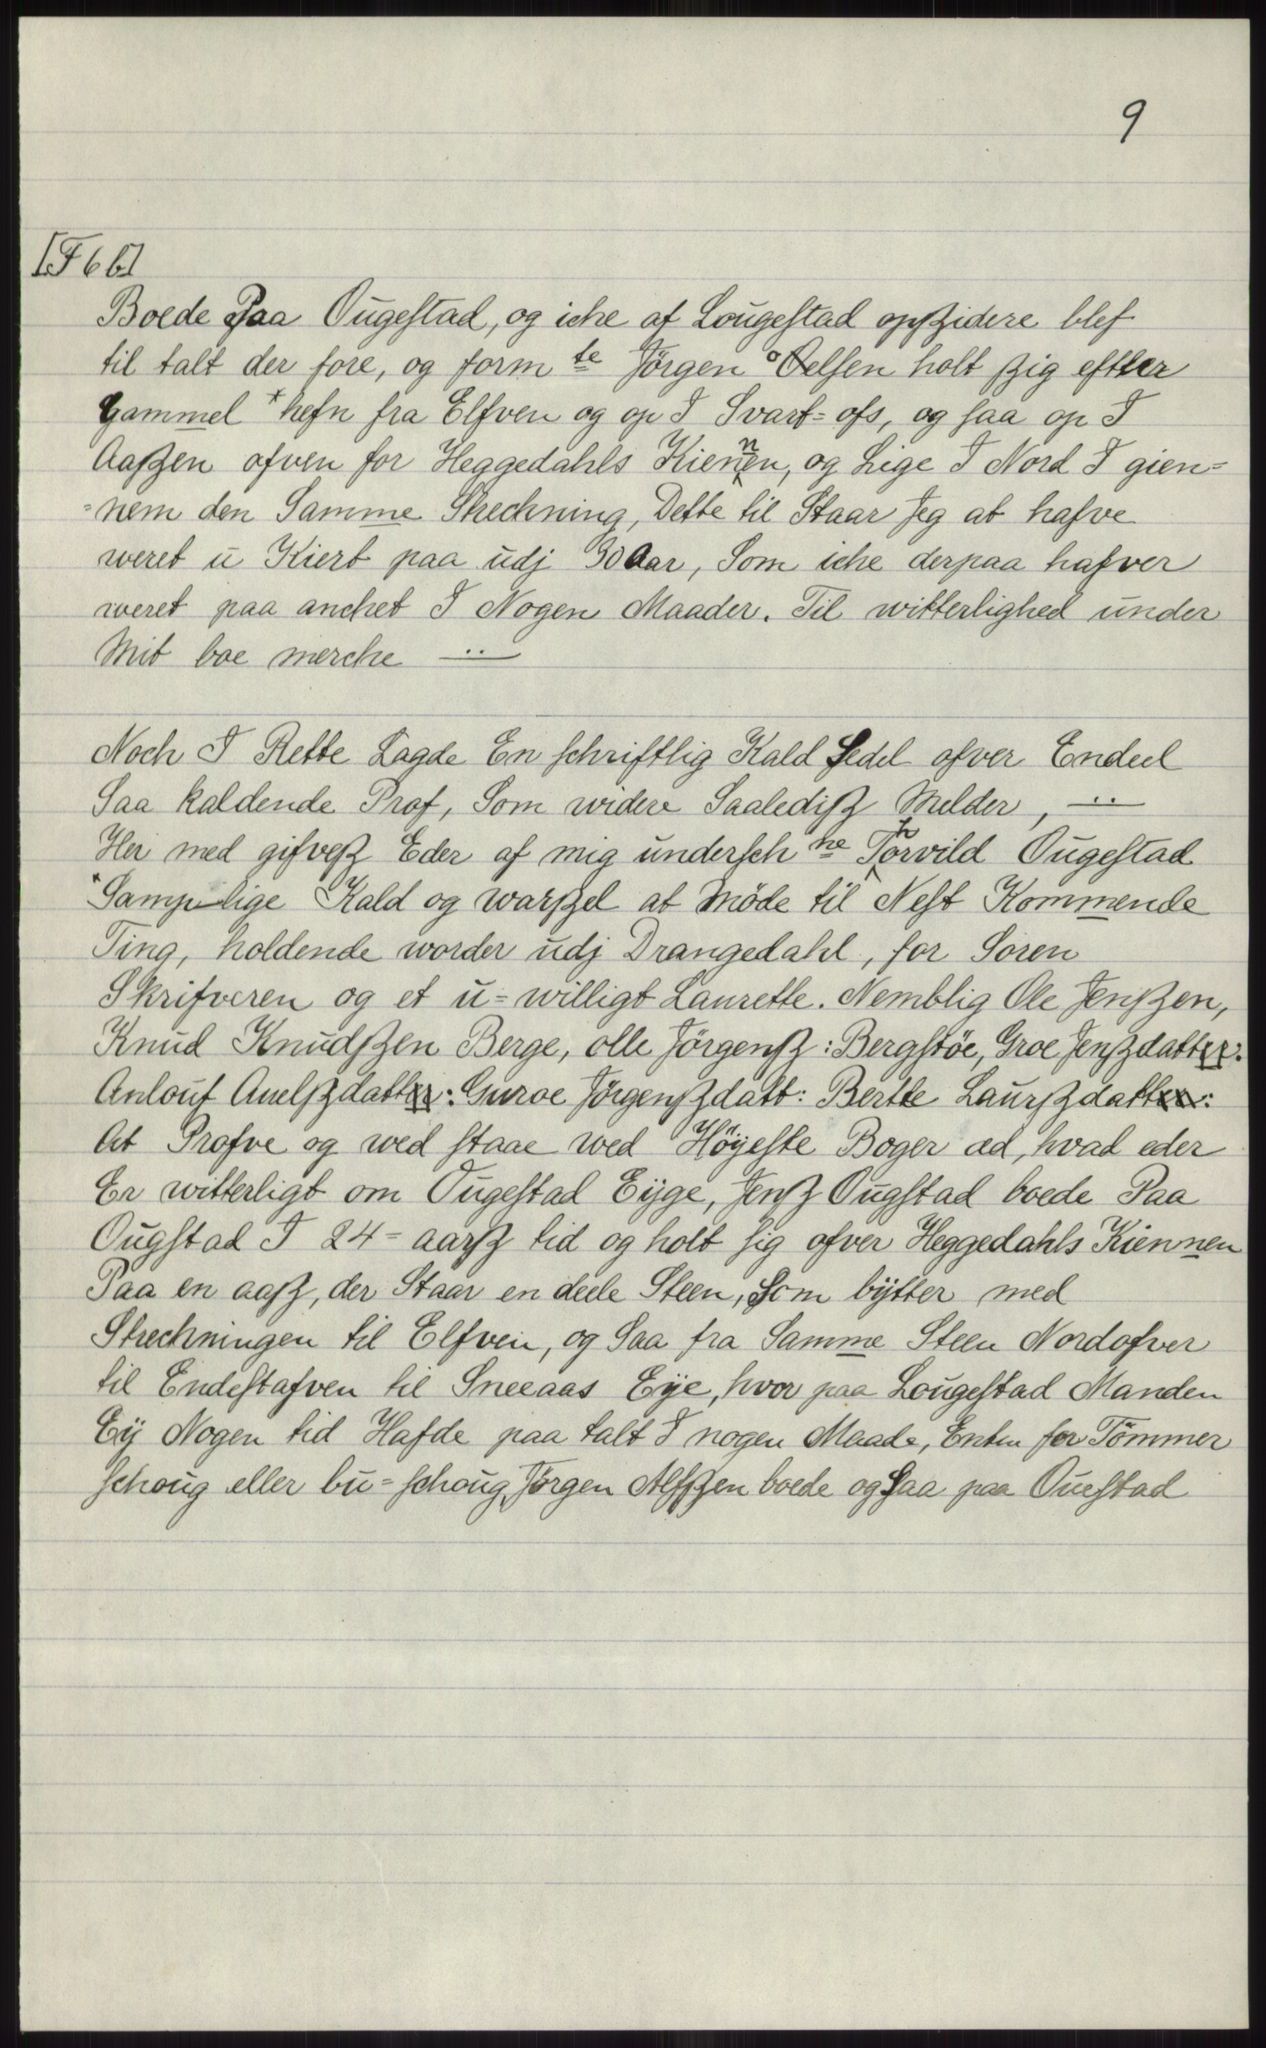 9
[F 6 b]
Boede Paa Ougestad, og iche af Lougestad opszidere blef
til talt der fore, og form te Jörgen Oelsen holt szig efter
Gammel *hefn fra Elfven og op I Svart=ofs, og saa op I
Aaszen ofven for Heggedahls Kiennen, og Lige I Nord I gien=
=nem den Samme Strechning, Dette til Staar Jeg at hafve
weret u Kiert paa udj 30 Aar, Som iche derpaa hafver
weret paa anchet I Nogen Maader. Til witterlighed under
Mit boe merche —··—
Noch I Rette Lagde En schriftlig Kald Sedel ofver Endeel
Saa kaldende Prof, Som widere Saaledisz Melder, —··—
Her med gifvesz Eder af mig undersch ne Thorvild Ougestad
*Samp=lige Kald og warszel at Möde til Nest Kommende
Ting, holdende worder udj Drangedahl, for Soren
Skrifveren og et u=willigt Laurette. Nemblig Ole Jenszen,
Knud Knudszen Berge, olle Jörgensz: Bergstöe, Groe Jenszdatt:
Anlouf Auelszdatt: Guroe Jörgenszdatt: Berte Laurszdatt:
At Profve og wed staae wed Höyeste Boger æd, hvad eder
Er witterligt om Ougestad Eÿge, Jensz Ougstad boede Paa
Ougstad I 24=aarsz tid og holt sig ofver Heggedahls Kiennen
Paa en aasz, der Staar en deele Steen, Som bÿtter med
Strechningen til Elfven, og Saa fra Samme Steen Nordofver
til Endestafven til Sneeaas Eÿe, hvor paa Lougestad Manden
Eÿ Nogen tid Hafde paa talt I nogen Maade, Enten for Tömmer
schoug eller bu=schoug, Jörgen Alfszen boede og Saa paa Ouestad